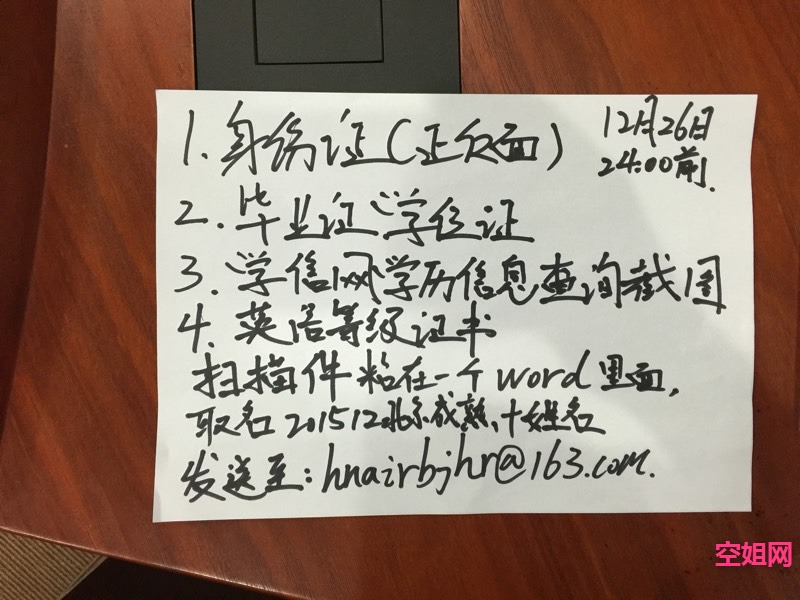 1. 身份证(正反面)
12月26日
24:00前.
2. 毕业证、学位证
3. 学信网学历信息查询截图
4. 英语等级证书
扫描件粘在一个word里面,
取名201512北京成熟、十姓名
发送至: hnairbjhr@163.com.
空姐网